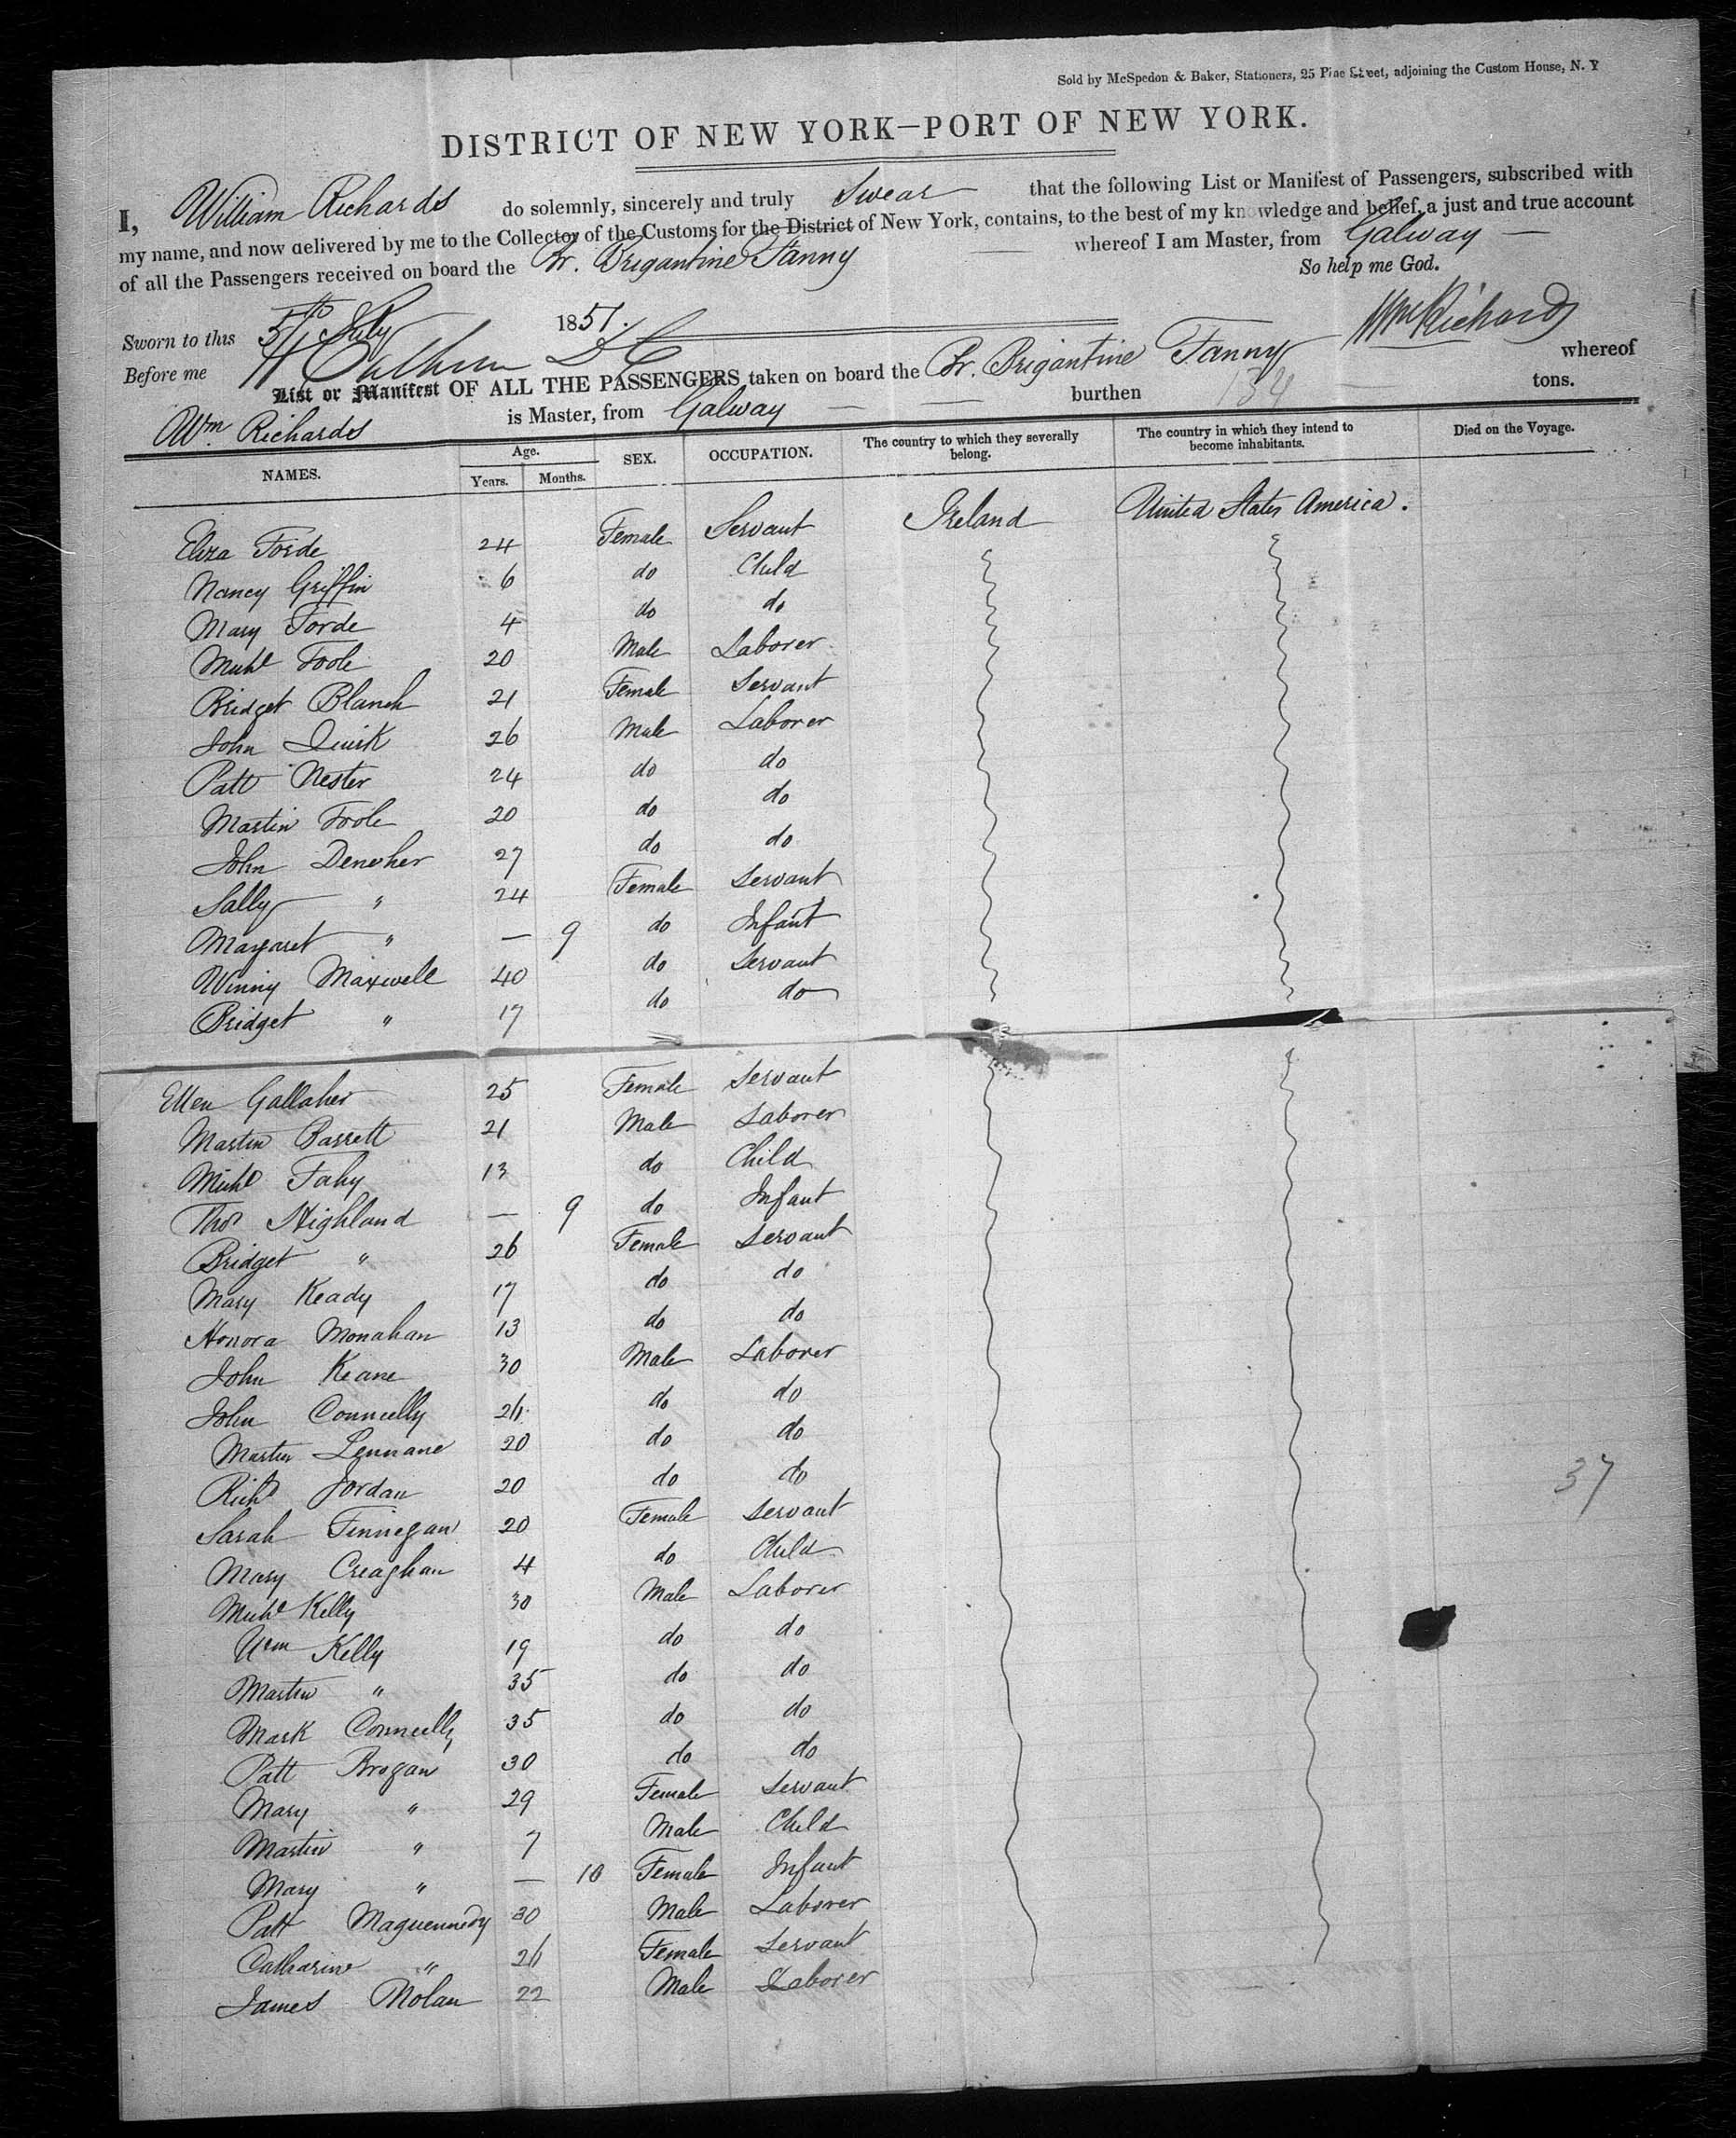 Sold by McSpedon & Baker, Stationers, 25 Pine Street, adjoining the Custom House, N. Y
DISTRICT OF NEW YORK—PORT OF NEW YORK.
I, William Richards do solemnly, sincerely and truly Swear that the following List or Manifest of Passengers, subscribed with
my name, and now delivered by me to the Collector of the Customs for the District of New York, contains, to the best of my knowledge and belief, a just and true account
of all the Passengers received on board the Br. Brigantine Fanny whereof I am Master, from Galway —
So help me God.
Sworn to this 5th July 1851. Wm Richards
Before me
List or Manifest OF ALL THE PASSENGERS taken on board the Br. Brigantine Fanny whereof
Wm Richards is Master, from Galway — — burthen 134 tons.
NAMES. Age. Years. Months. SEX. OCCUPATION. The country to which they severally belong. The country in which they intend to become inhabitants. Died on the Voyage.
Eliza Forde 24 Female Servant Ireland United States America.
Nancy Griffin 6 do Child
Mary Forde 4 do do
Michl Foole 20 Male Laborer
Bridget Blanch 21 Female Servant
John Quirk 26 Male Laborer
Patt Nester 24 do do
Martin Foole 20 do do
John Denoher 27 do do
Sally " 24 Female Servant
Margaret " — 9 do Infant
Winny Maxwell 40 do Servant
Bridget " 17 do do
Ellen Gallaher 25 Female Servant
Martin Barrett 21 Male Laborer
Michl Fahy 13 do Child
Thos Highland — 9 do Infant
Bridget " 26 Female Servant
Mary Keady 17 do do
Honora Monahan 13 do do
John Keane 30 Male Laborer
John Connelly 24 do do
Martin Lennane 20 do do
Richd Jordan 20 do do
37
Sarah Finnegan 20 Female Servant
Mary Creaghan 4 do Child
Michl Kelly 30 Male Laborer
Wm Kelly 19 do do
Martin " 35 do do
Mark Connelly 35 do do
Patt Brogan 30 do do
Mary " 29 Female Servant
Martin " 7 Male Child
Mary " — 10 Female Infant
Patt Maguennedy 30 Male Laborer
Catharine " 24 Female Servant
James Nolan 22 Male Laborer